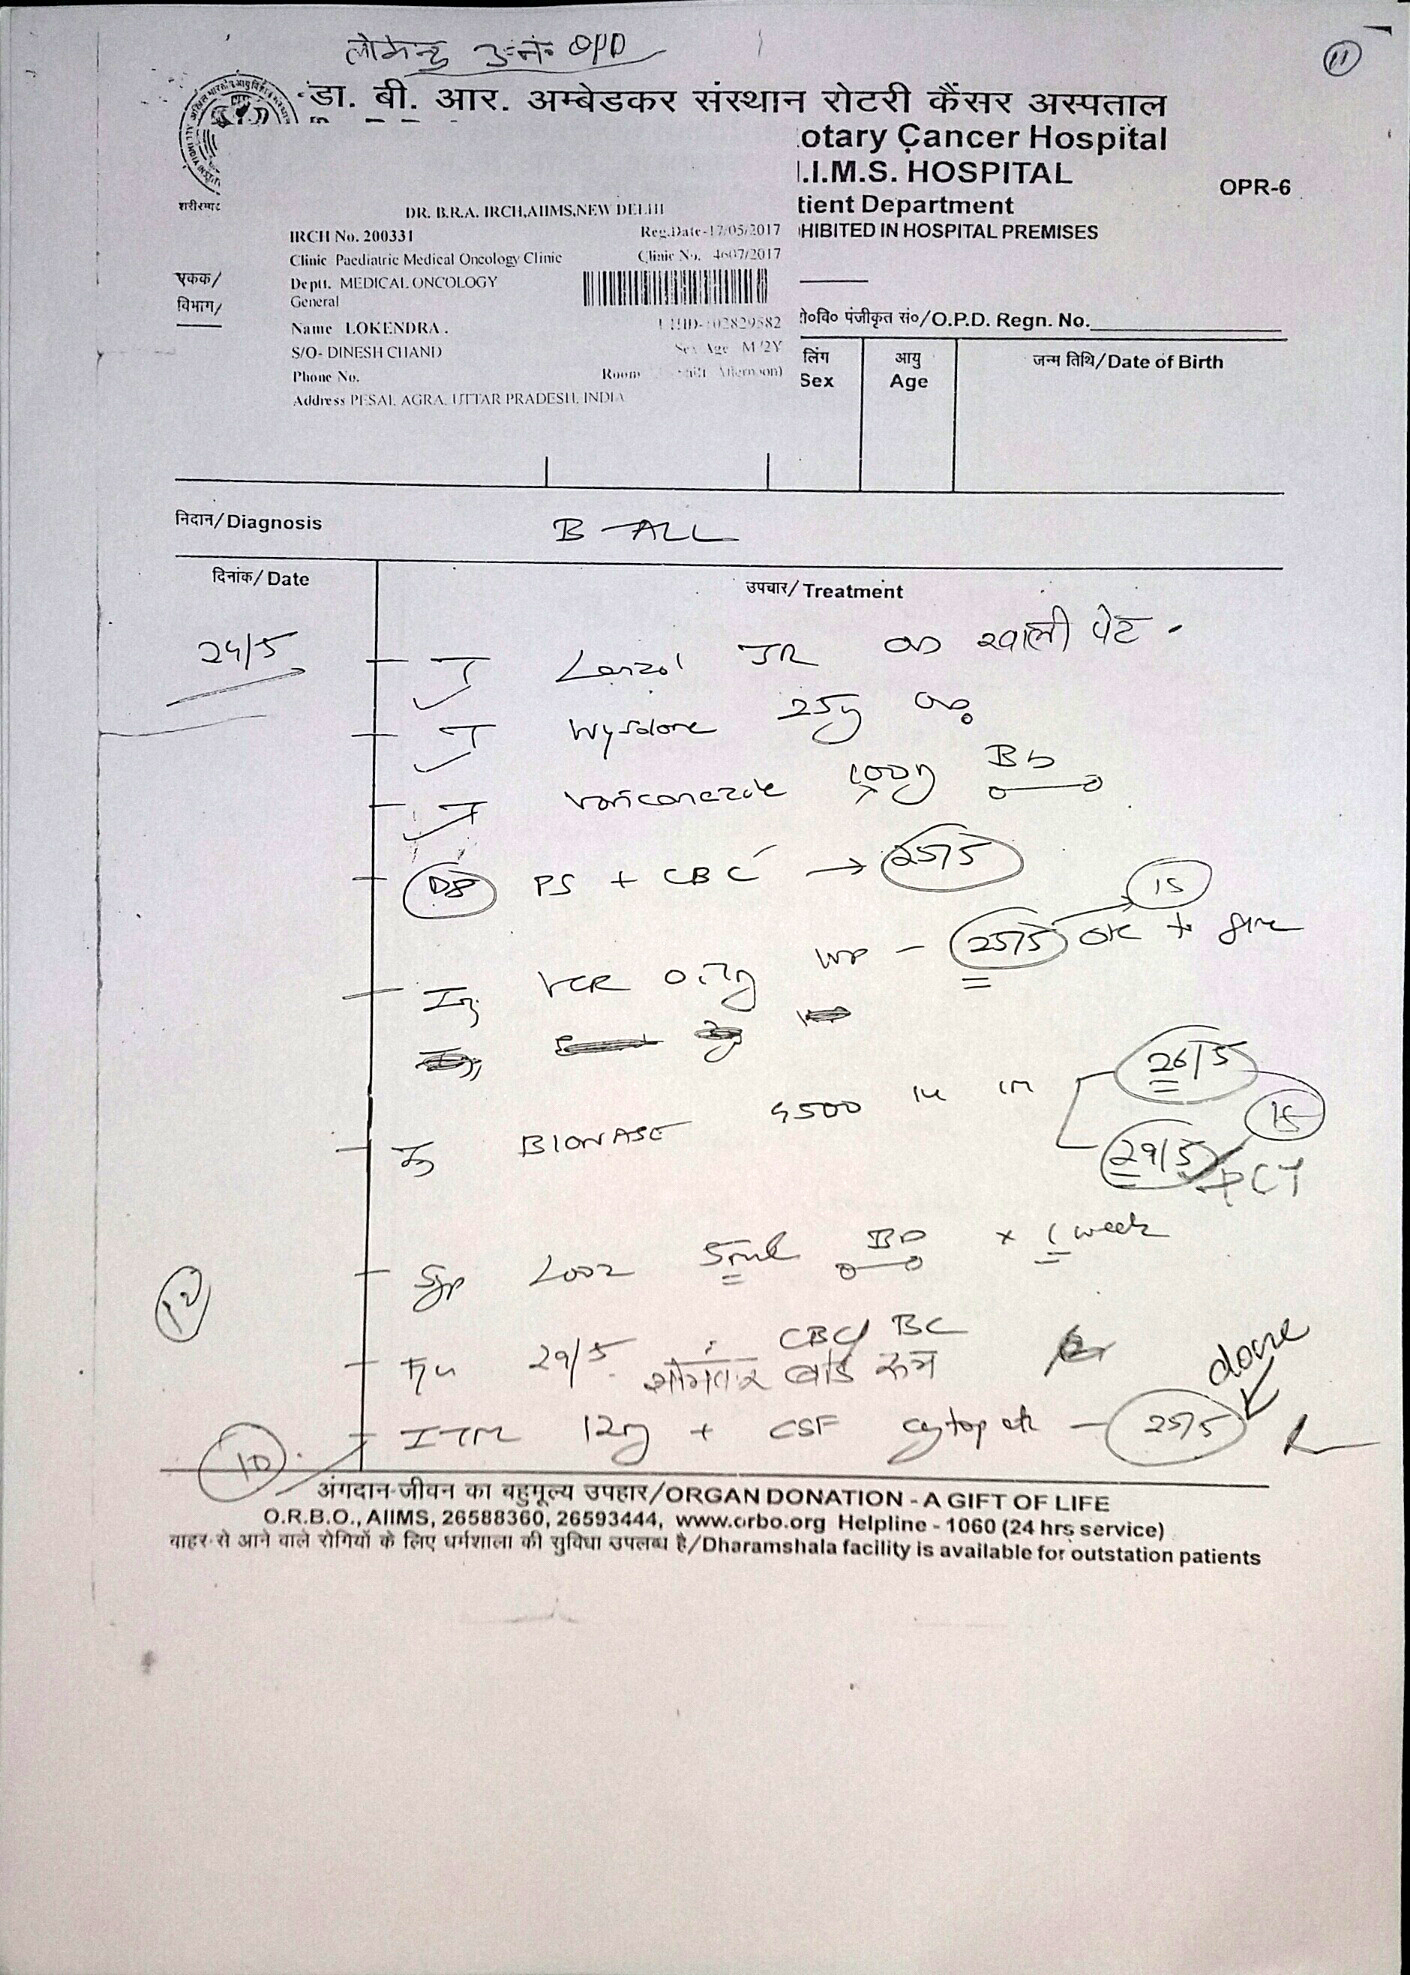 लोकेन्द्र 3 नं० OPD
11
डा. बी. आर. अम्बेडकर संस्थान रोटरी कैंसर अस्पताल
otary Cancer Hospital
.I.M.S. HOSPITAL
OPR-6
tient Department
HIBITED IN HOSPITAL PREMISES
DR. B.R.A. IRCH,AIIMS,NEW DELHI
IRCH No. 200331 Reg.Date-17/05/2017
Clinic Paediatric Medical Oncology Clinic Clinic No. 4607/2017
Deptt. MEDICAL ONCOLOGY
General
एकक/
विभाग/
Name LOKENDRA .
S/O- DINESH CHAND Sex Age M/2Y
Phone No. Room
Address PESAI, AGRA, UTTAR PRADESH, INDIA
ओ०वि० पंजीकृत सं०/O.P.D. Regn. No.
लिंग आयु जन्म तिथि/Date of Birth
Sex Age
निदान/Diagnosis B-ALL
दिनांक/Date उपचार/Treatment
24/5
T Lanzol JR OD खाली पेट
T Wysolone 25mg OD
T Voriconazole 100mg BD
D8 PS + CBC → 25/5
15
Inj VCR 0.7mg IVP - 25/5
BIONASE 4500 IU IM 26/5
15
29/5
Syp Looz 5ml BD x 1 week
12
F/u 29/5 CBC/BC
सोमवार बोर्ड रूम
ITM 12mg + CSF cytopath - 25/5
done
10
अंगदान-जीवन का बहुमूल्य उपहार/ORGAN DONATION - A GIFT OF LIFE
O.R.B.O., AIIMS, 26588360, 26593444, www.orbo.org Helpline - 1060 (24 hrs service)
बाहर से आने वाले रोगियों के लिए धर्मशाला की सुविधा उपलब्ध है/Dharamshala facility is available for outstation patients